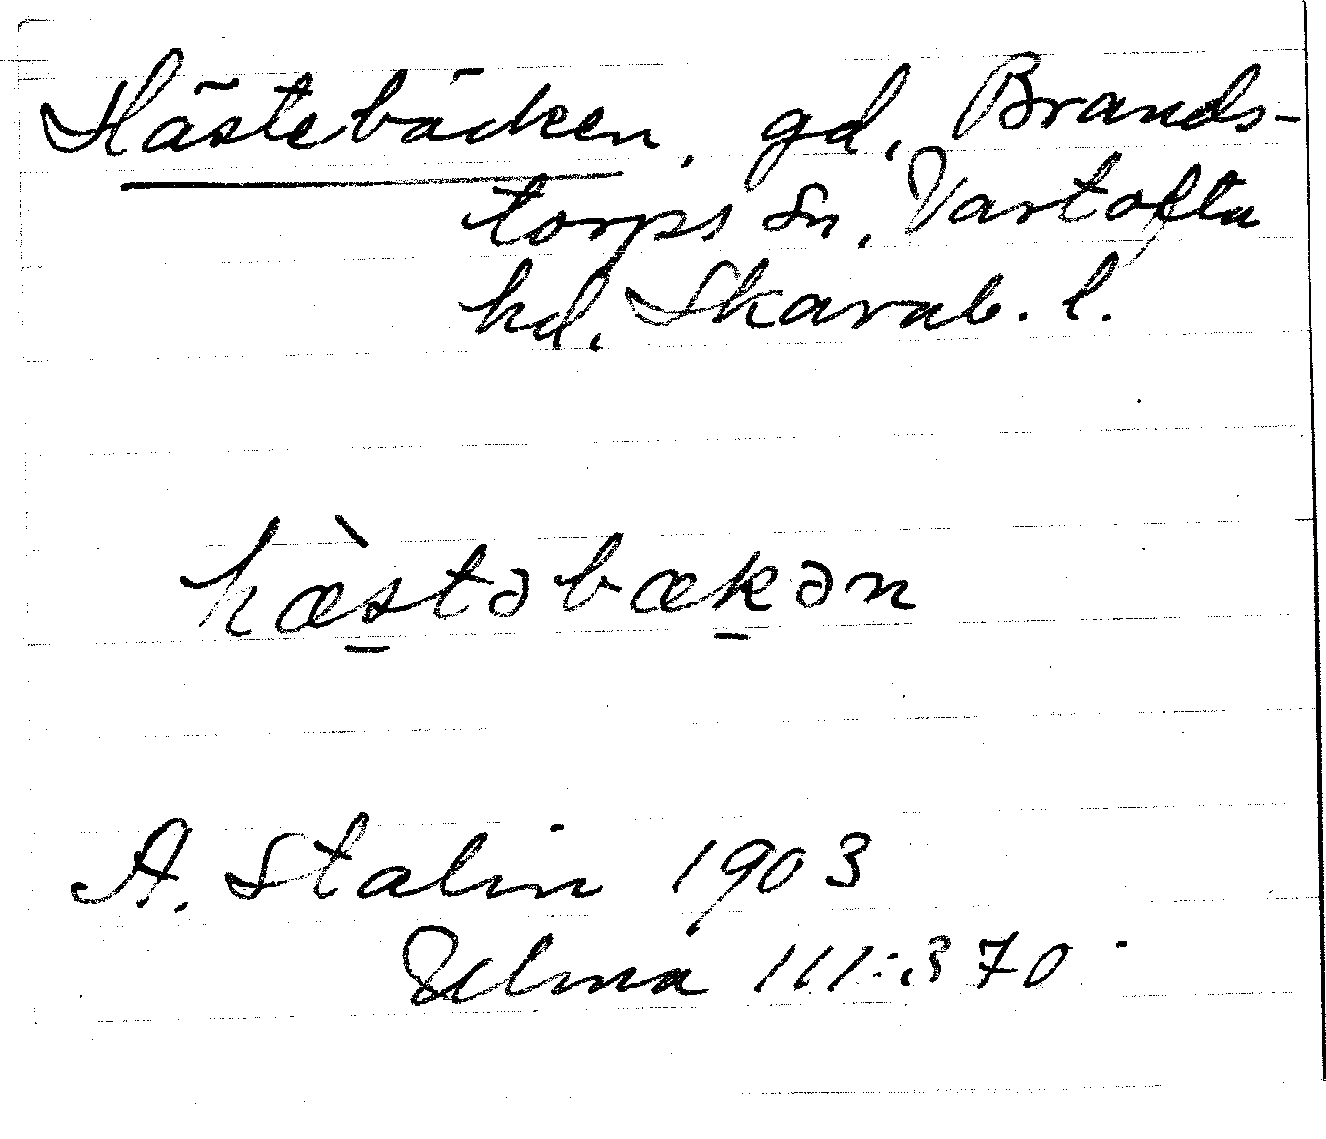 Hästebäcken, gd, Brands-
torps sn, Vartofta
hd. Skarab. l.
hæ̀stəbækən
A. Stalin 1903
Ulma 111:370